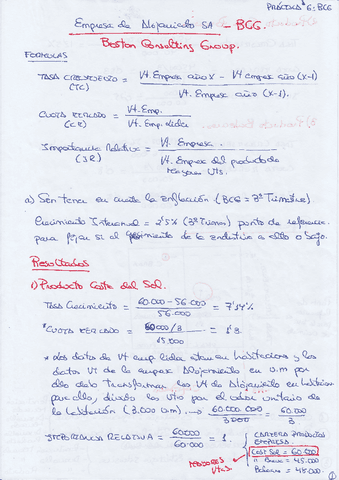 PRÁCTICA 6: BCG
Empresa de Alojamiento SA - BCG.
Boston Consulting Group.
FORMULAS
TASA CRECIMIENTO = Vt. Empresa año x - Vt empresa año (x-1)
(TC) Vt. Empresa año (x-1).
CUOTA MERCADO = Vt. Emp.
(CR) Vt. Emp. lider
Importancia Relativa = Vt. Empresa.
(IR) Vt. Empresa del producto de
mayores Vts.
a) Sin tener en cuenta la inflación. (BCG = 3º Trimestre)
Crecimiento Interanual = 2'5% (3º Trimes) punto de referencia
para fijar si el crecimiento de la industria es alto o bajo.
Resultados
1) Producto Costa del Sol.
Tasa Crecimiento = 60.000 - 56.000 = 7'14%
56.000
*CUOTA MERCADO = 60000/3 = 1'3
15.000
* Los datos de Vt emp. lider estan en habitaciones y los
datos Vt de la empresa Alojamiento en u.m por
ello debo transformar las Vt de Alojamiento en habitacion
por ello, divido las Vts por el valor unitario de
la habitación (3.000 u.m) ... → 60.000.000 = 60.000
3000 3
IMPORTANCIA RELATIVA = 60.000 = 1.
60.000
CARTERA PRODUCTOS
EMPRESA.
MAYORES
Vts
Cost Sol = 60.000
= 45.000
Baleares = 48.000.
1